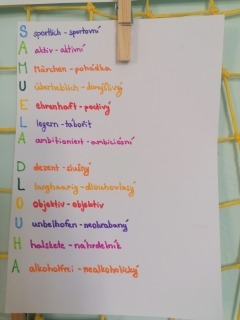 S sportlich - sportovní
A aktiv - aktivní
M Märchen - pohádka
U überheblich - domýšlivý
E ehrenhaft - poctivý
L legern - tábořit
A ambitioniert - ambiciózní
D dezent - slušný
L langhaarig - dlouhovlasý
O objektiv - objektiv
U unbeholfen - neohrabaný
H halskete - náhrdelník
A alkoholfrei - nealkoholický